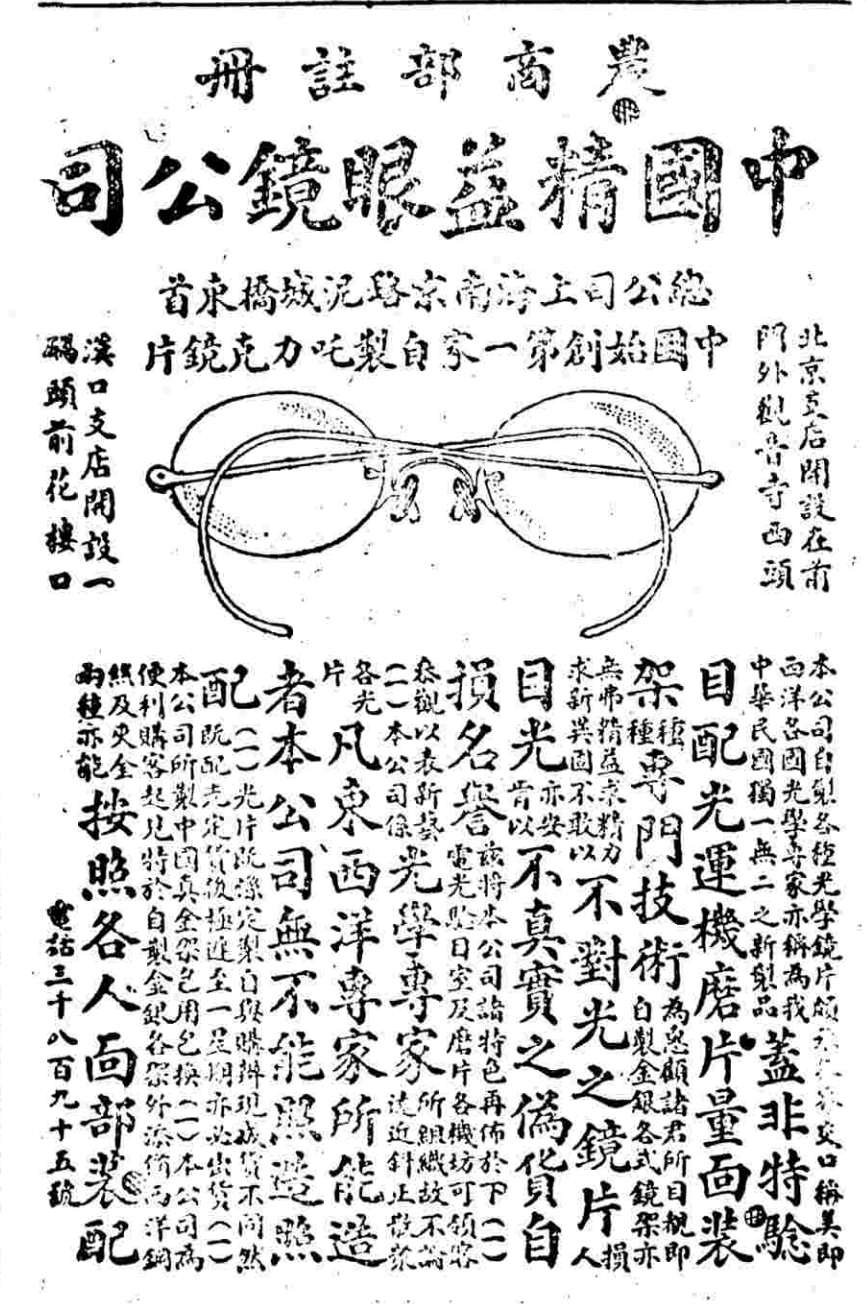 農商部註冊
中國精益眼鏡公司
總公司上海南京路泥城橋東首
中國始創第一家自製吒力克鏡片
北京支店開設在前
門外觀音寺西頭
漢口支店開設一
碼頭前花樓口
本公司自製各種光學鏡片頗 界交口稱美即
西洋各國光學專家亦稱為我
中華民國獨一無二之新製品
蓋非特驗
目配光運機磨片量面裝
架種種專門技術
為惠顧諸君所目覩即
自製金銀各式鏡架亦
無弗精益求精力
求新異固不敢以
不對光之鏡片損人
目光亦安肯以不真實之偽貨自
損名譽
茲將本公司諸特色再佈於下(一)
電光驗目室及磨片各機坊可領客
參觀以表新藝
(一)本公司係
光學專家
所組織故不論
遠近斜正散聚
各光片
凡東西洋專家所能造
者本公司無不能照造照
配
(一)光片既係定製自與購辦現成貨不同然
既配光定貨後極遲至一星期亦必出貨(一)
本公司所製中國真金架包用包換(一)本公司為
便利購客起見特於自製金銀各架外添備西洋鋼
絲及夾金
兩種亦能
按照各人面部裝配
電話三千八百九十五號